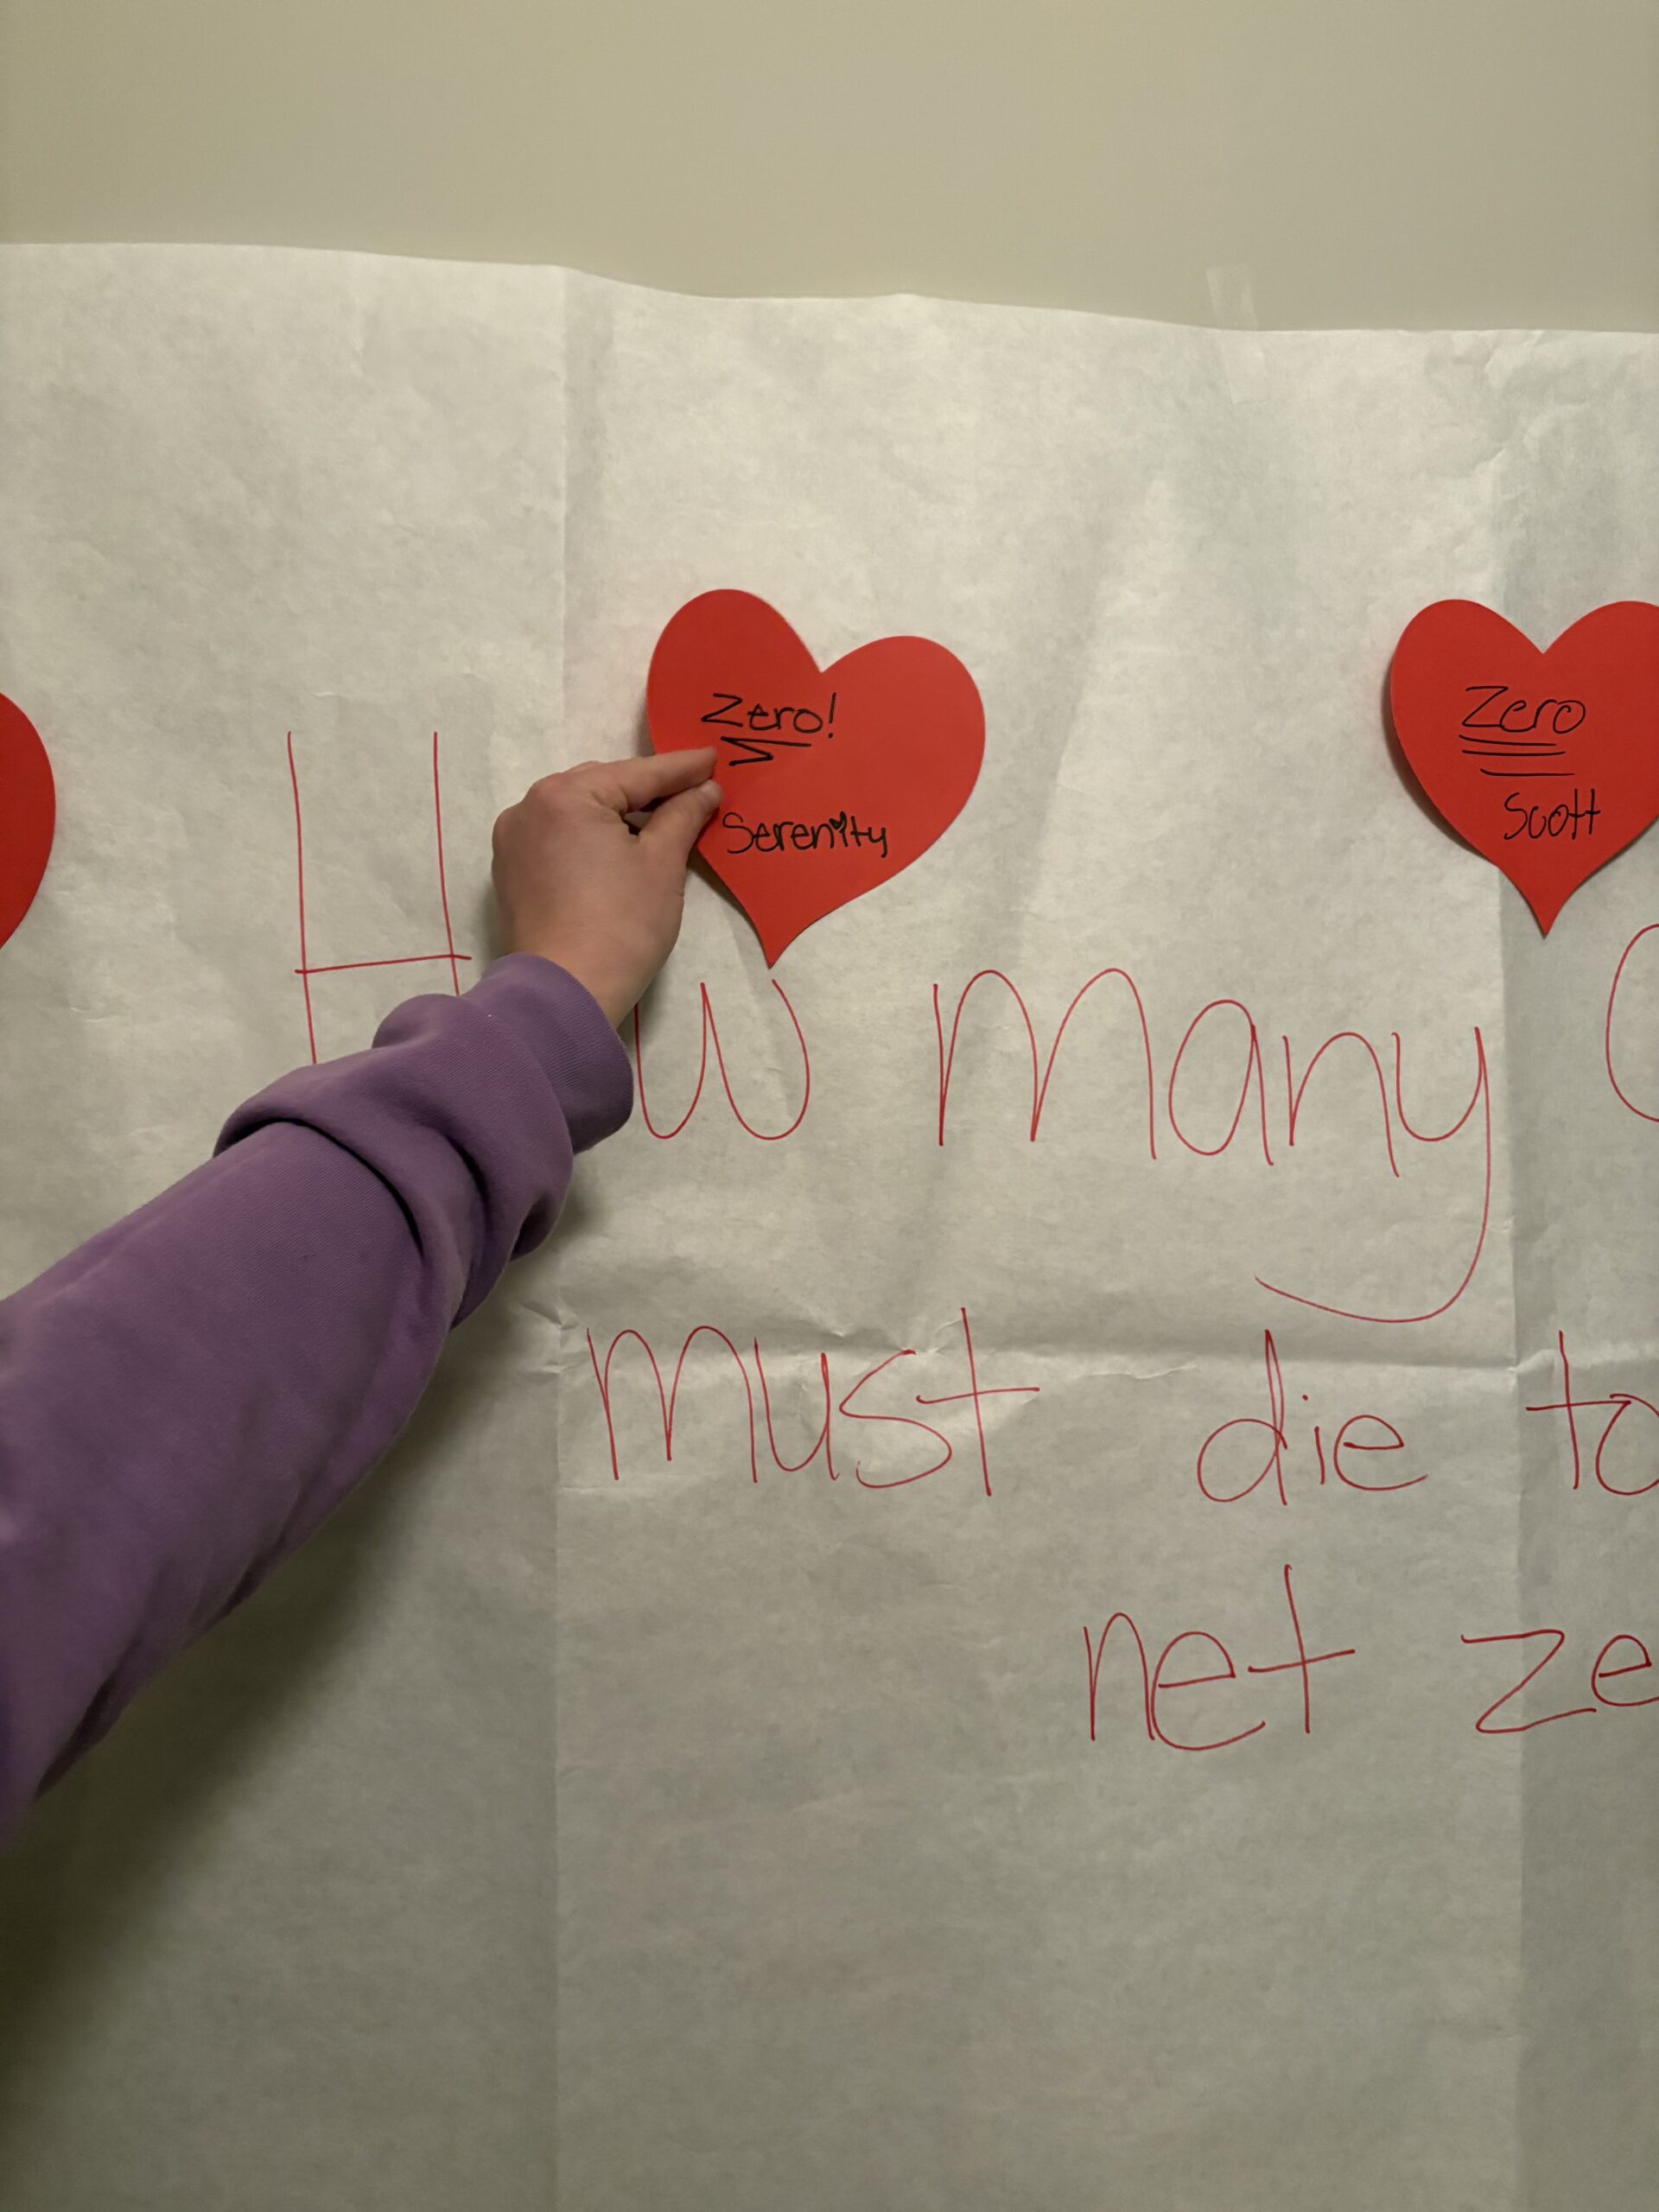 Zero!
Serenity
Zero
Scott
many
must die to
net